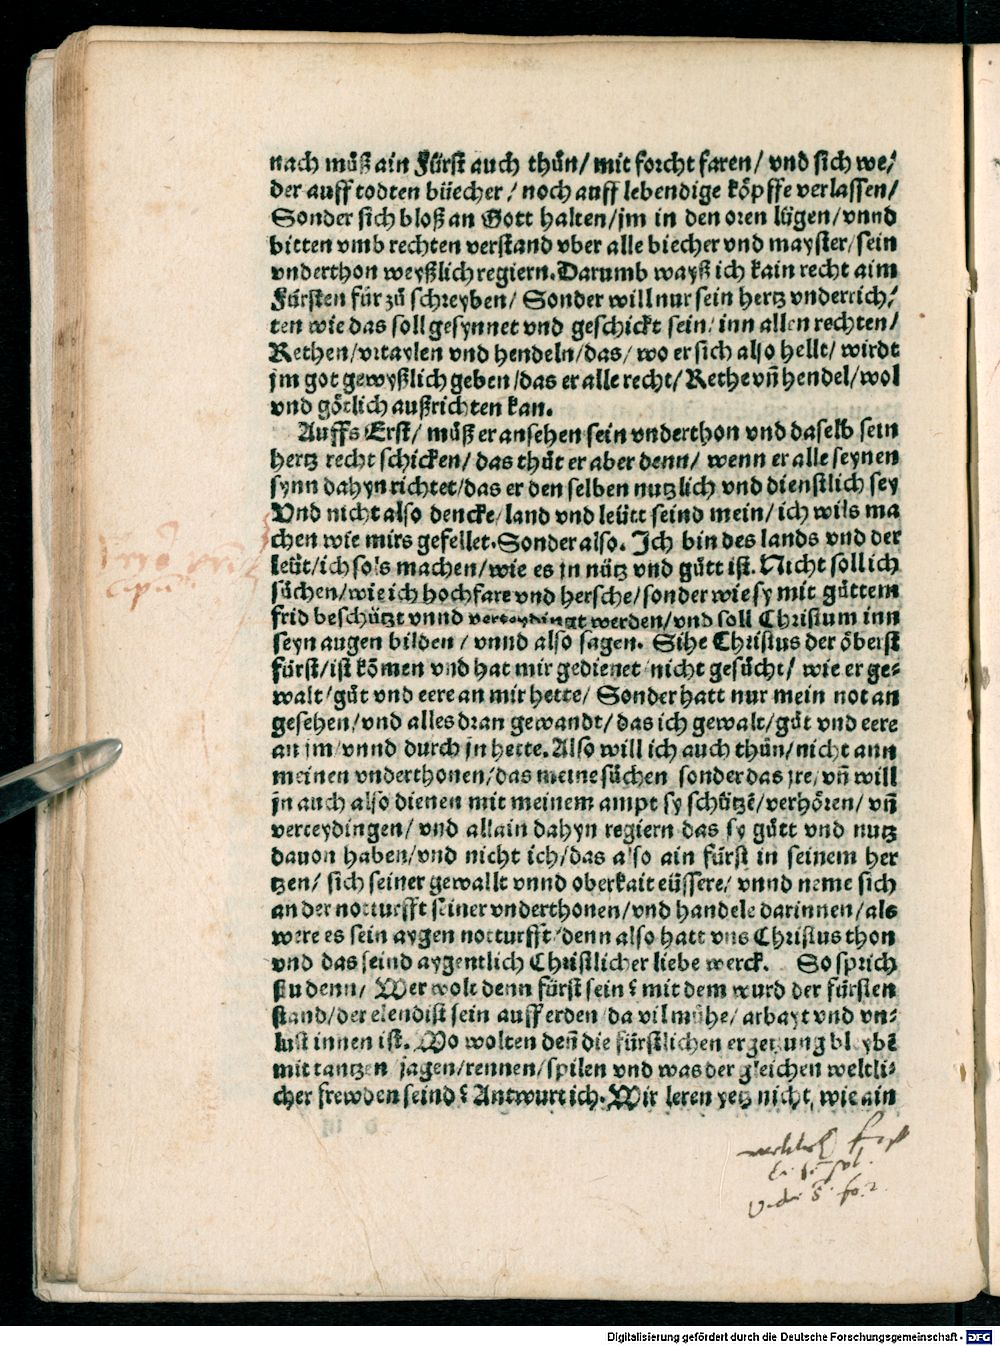 nach müß ain Fürst auch thůn/ mit forcht faren/ vnd sich we⸗
der auff todten büecher/ noch auff lebendige köpffe verlassen/
Sonder sich bloß an Gott halten/ jm in den oren lügen/ vnnd
bitten vmb rechten verstand vber alle biecher vnd mayster/ sein
vnderthon weyßlich regiern. Darumb wayß ich kain recht aim
Fürsten für zů schreyben/ Sonder will nur sein hertz vnderrich⸗
ten wie das soll gesynnet vnd geschickt sein/ inn allen rechten/
Rethen/ vrtaylen vnd hendeln/ das/ wo er sich also hellt/ wirdt
jm got gewyßlich geben/ das er alle recht/ Rethe vn̄ hendel/ wol
vnd götlich außrichten kan.
Auffs Erst/ můß er ansehen sein vnderthon vnd daselb sein
hertz recht schicken/ das thůt er aber denn/ wenn er alle seynen
synn dahyn richtet/ das er den selben nutzlich vnd dienstlich sey
Vnd nicht also dencke/ land vnd leütt seind mein/ ich wils ma
chen wie mirs gefellet. Sonder also. Ich bin des lands vnd der
leüt/ ich sols machen/ wie es jn nütz vnd gůtt ist. Nicht soll ich
sůchen/ wie ich hoch fare vnd hersche/ sonder wie sy mit gůttem
frid beschützt vnnd verteydingt werden/ vnd soll Christum inn
seyn augen bilden/ vnnd also sagen. Sihe Christus der öberst
fürst/ ist kōmen vnd hat mir gedienet nicht gesůcht/ wie er ge⸗
walt/ gůt vnd eere an mir hette/ Sonder hatt nur mein not an
gesehen/ vnd alles dran gewandt/ das ich gewalt/ gůt vnd eere
an jm/ vnnd durch jn hette. Also will ich auch thůn/ nicht ann
meinen vnderthonen/ das meine sůchen sonder das jre/ vn̄ will
jn auch also dienen mit meinem ampt sy schützē/ verhören/ vn̄
verteydingen/ vnd allain dahyn regiern das sy gůtt vnd nutz
dauon haben/ vnd nicht ich/ das also ain fürst in seinem her
tzen/ sich seiner gewallt vnnd oberkait eüssere/ vnnd neme sich
an der notturfft seiner vnderthonen/ vnd handele darinnen/ als
were es sein aygen notturfft/ denn also hatt vns Christus thon
vnd das seind aygentlich Christlicher liebe werck. So sprich
stu denn/ Wer wolt denn fürst sein? mit dem wurd der fürsten
stand/ der elendist sein auff erden/ da vil mühe/ arbayt vnd vn⸗
lust innen ist. Wo wolten den̄ die fürstlichen ergetzung bleybē
mit tantzen/ jagen/ rennen/ spilen vnd was der gleichen weltli⸗
cher frewden seind? Antwurt ich. Wir leren yetz nicht, wie ain
Digitalisierung gefördert durch die Deutsche Forschungsgemeinschaft - DFG